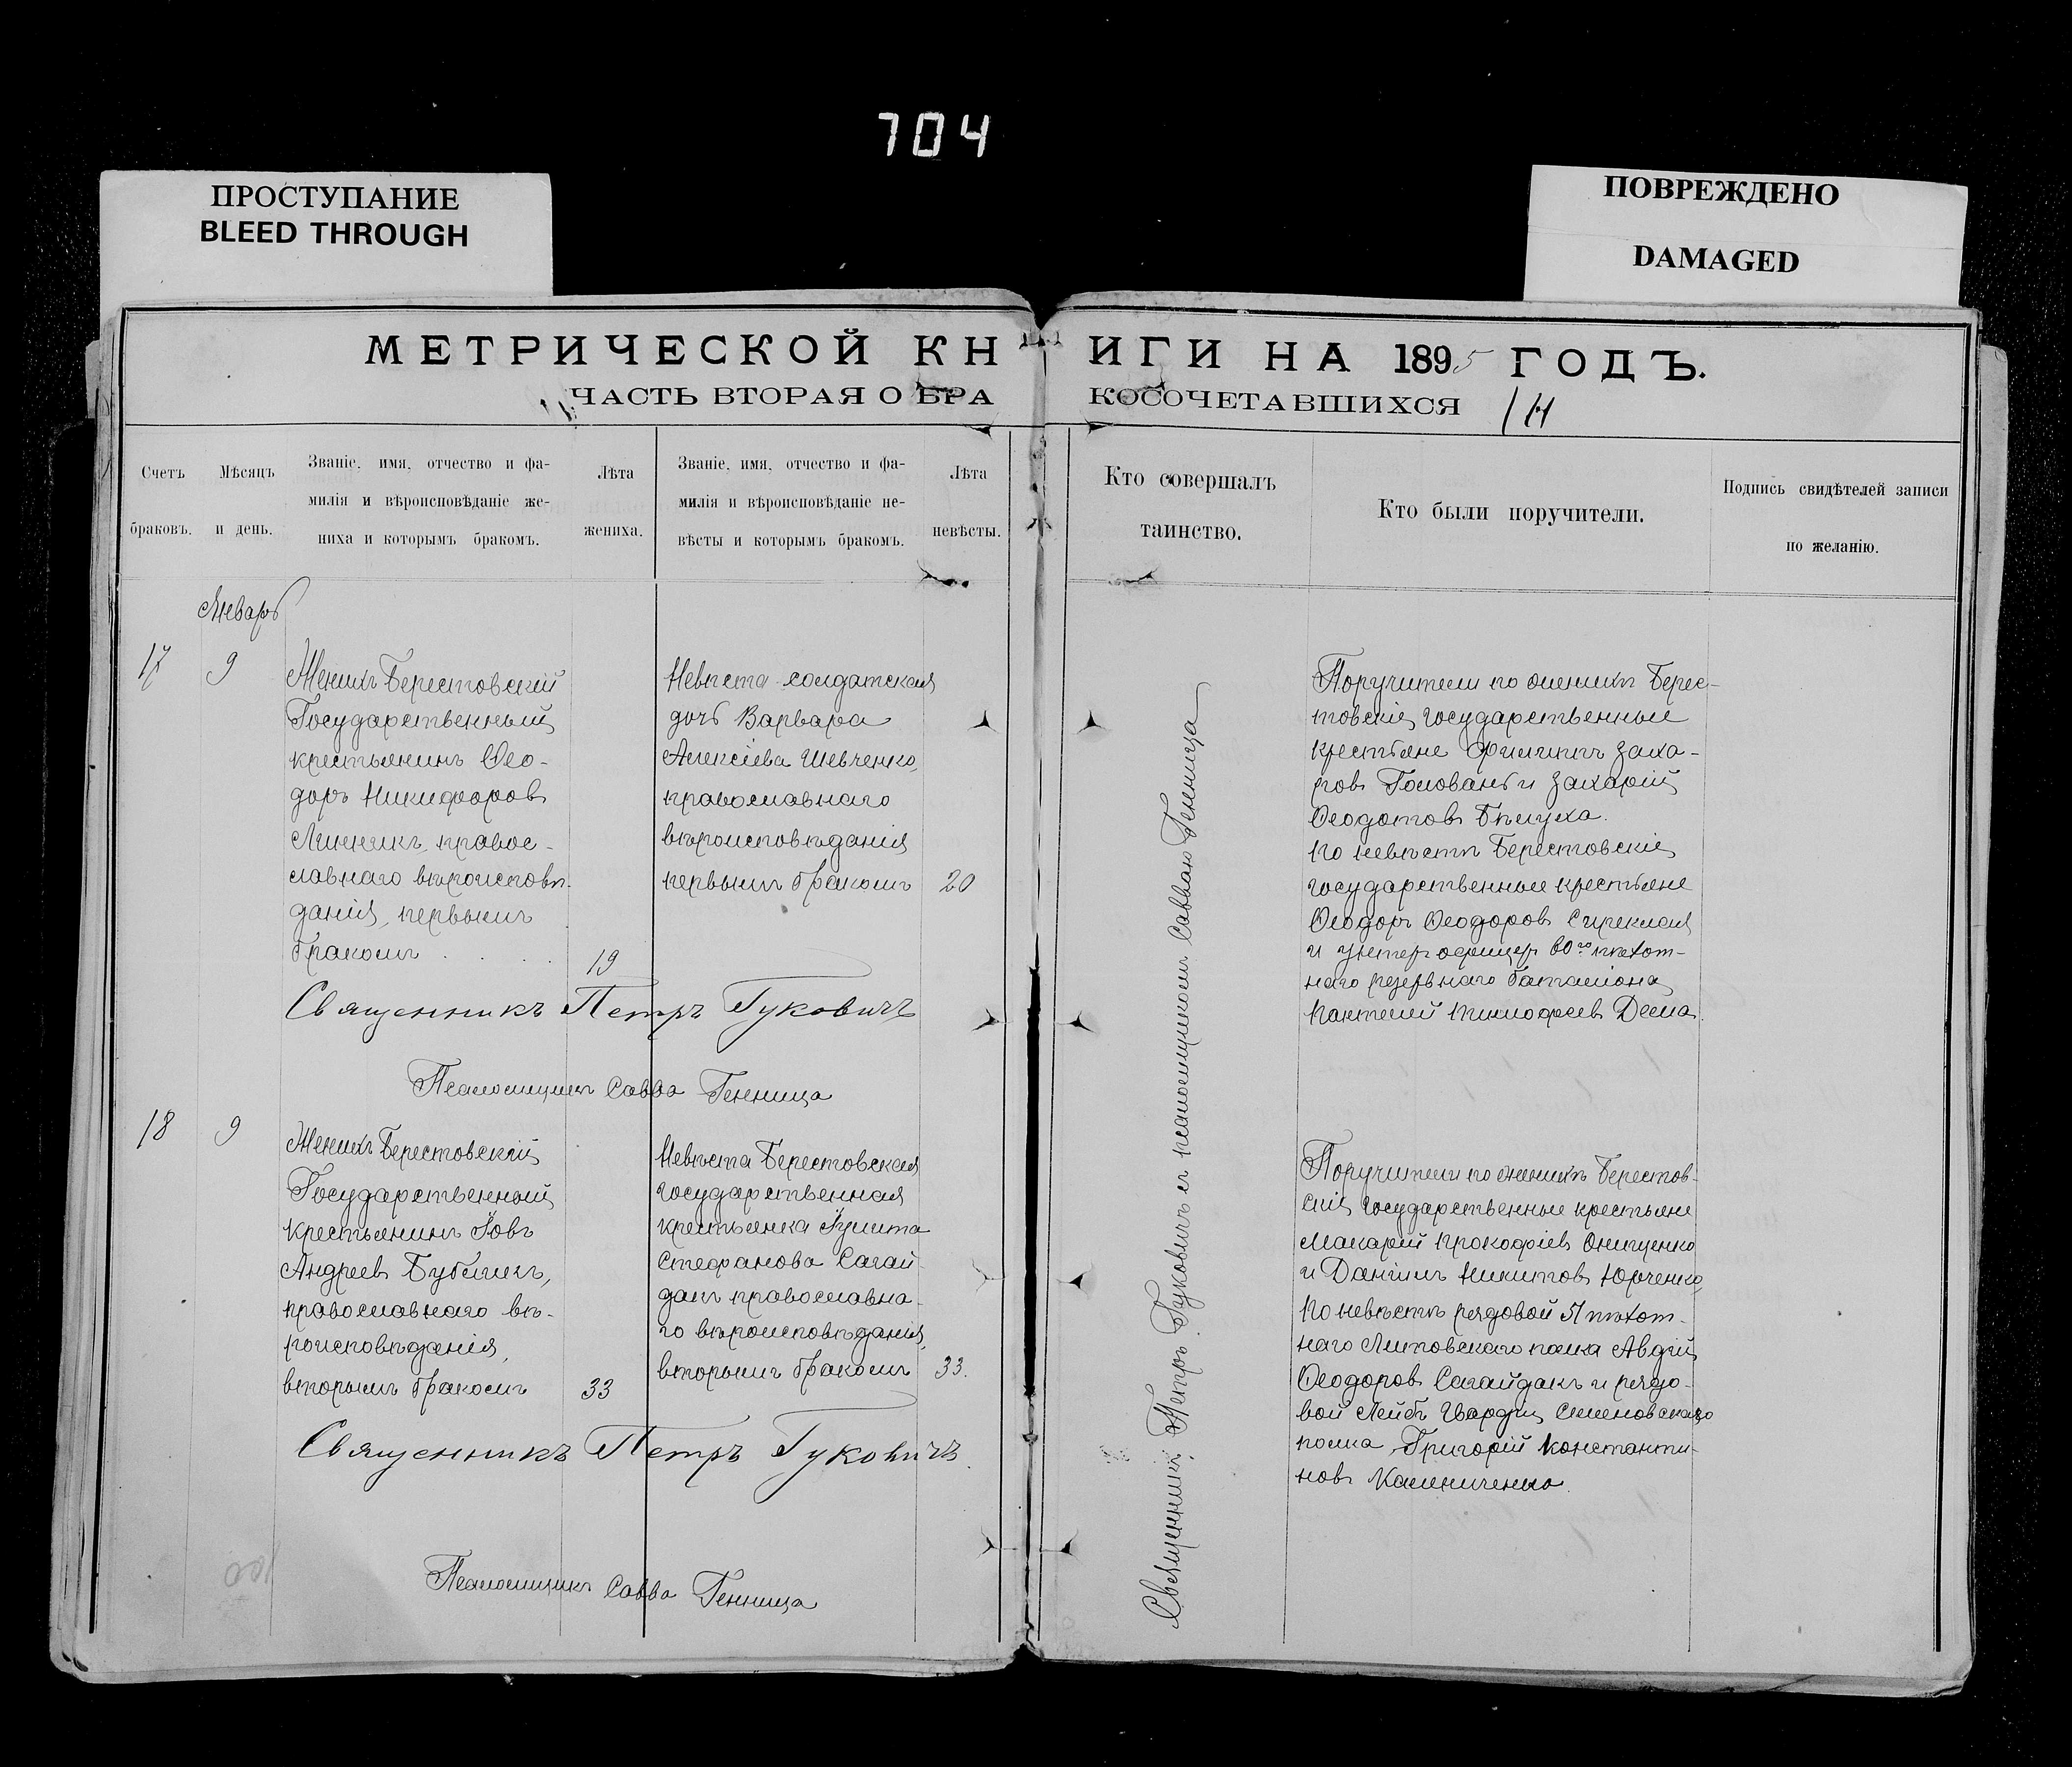 704
ПРОСТУПАНИЕ
BLEED THROUGH
ПОВРЕЖДЕНО
DAMAGED
МЕТРИЧЕСКОЙ КНИГИ НА 1895 ГОДЪ.
ЧАСТЬ ВТОРАЯ О БРАКОСОЧЕТАВШИХСЯ
Счетъ браковъ.
Мѣсяцъ и день.
Званіе, имя, отчество и фа-
милія и вѣроисповѣданіе же-
ниха и которымъ бракомъ.
Лѣта жениха.
Званіе, имя, отчество и фа-
милія и вѣроисповѣданіе не-
вѣсты и которымъ бракомъ.
Лѣта невѣсты.
Кто совершалъ
таинство.
Кто были поручители.
Подпись свидѣтелей записи
по желанію.
Январь
17 9
Женихъ Берестовскій
Государственный
крестьянинъ Ѳео-
доръ Никифоровъ
Линникъ, правос-
лавнаго вѣроисповѣ-
данія, первымъ
бракомъ . . . . 19
Невѣста солдатская
дочь Варвара
Алексіева Шевченко,
православнаго
вѣроисповѣданія
первымъ бракомъ 20
Священникъ Петръ Гуковичъ
Псаломщикъ Савва Генница
Поручители по женихѣ Берес-
товскіе государственные
крестьяне Филиппъ Заха-
ровъ Головань и Захарій
Ѳеодотовъ Бѣлуха.
По невѣстѣ Берестовскіе
государственные крестьяне
Ѳеодоръ Ѳеодоровъ
и унтеръ офицеръ 60го пѣхот-
наго резервнаго баталіона
Пантелей Тимофеевъ Дема.
18 9
Женихъ Берестовскій
Государственный
крестьянинъ Іовъ
Андреевъ Бубликъ,
православнаго вѣ-
роисповѣданія,
вторымъ бракомъ 33
Невѣста Берестовская
государственная
крестьянка Іулитта
Стефанова Сагай-
дакъ православна-
го вѣроисповѣданія,
вторымъ бракомъ 33.
Священникъ Петръ Гуковичъ
Псаломщикъ Савва Генница
Поручители по женихѣ Берестов-
скіе государственные крестьяне
Макарій Прокофіевъ Онищенко
и Даніилъ Никитовъ Юрченко,
По невѣстѣ рядовой пѣхот-
наго Литовскаго полка Авдій
Ѳеодоровъ Сагайдакъ и рядо-
вой Лейбъ Гвардіи Семеновскаго
полка Григорій Константи-
новъ Калиниченко.
Священникъ Петръ Гуковичъ съ псаломщикомъ Саввою Генница
100